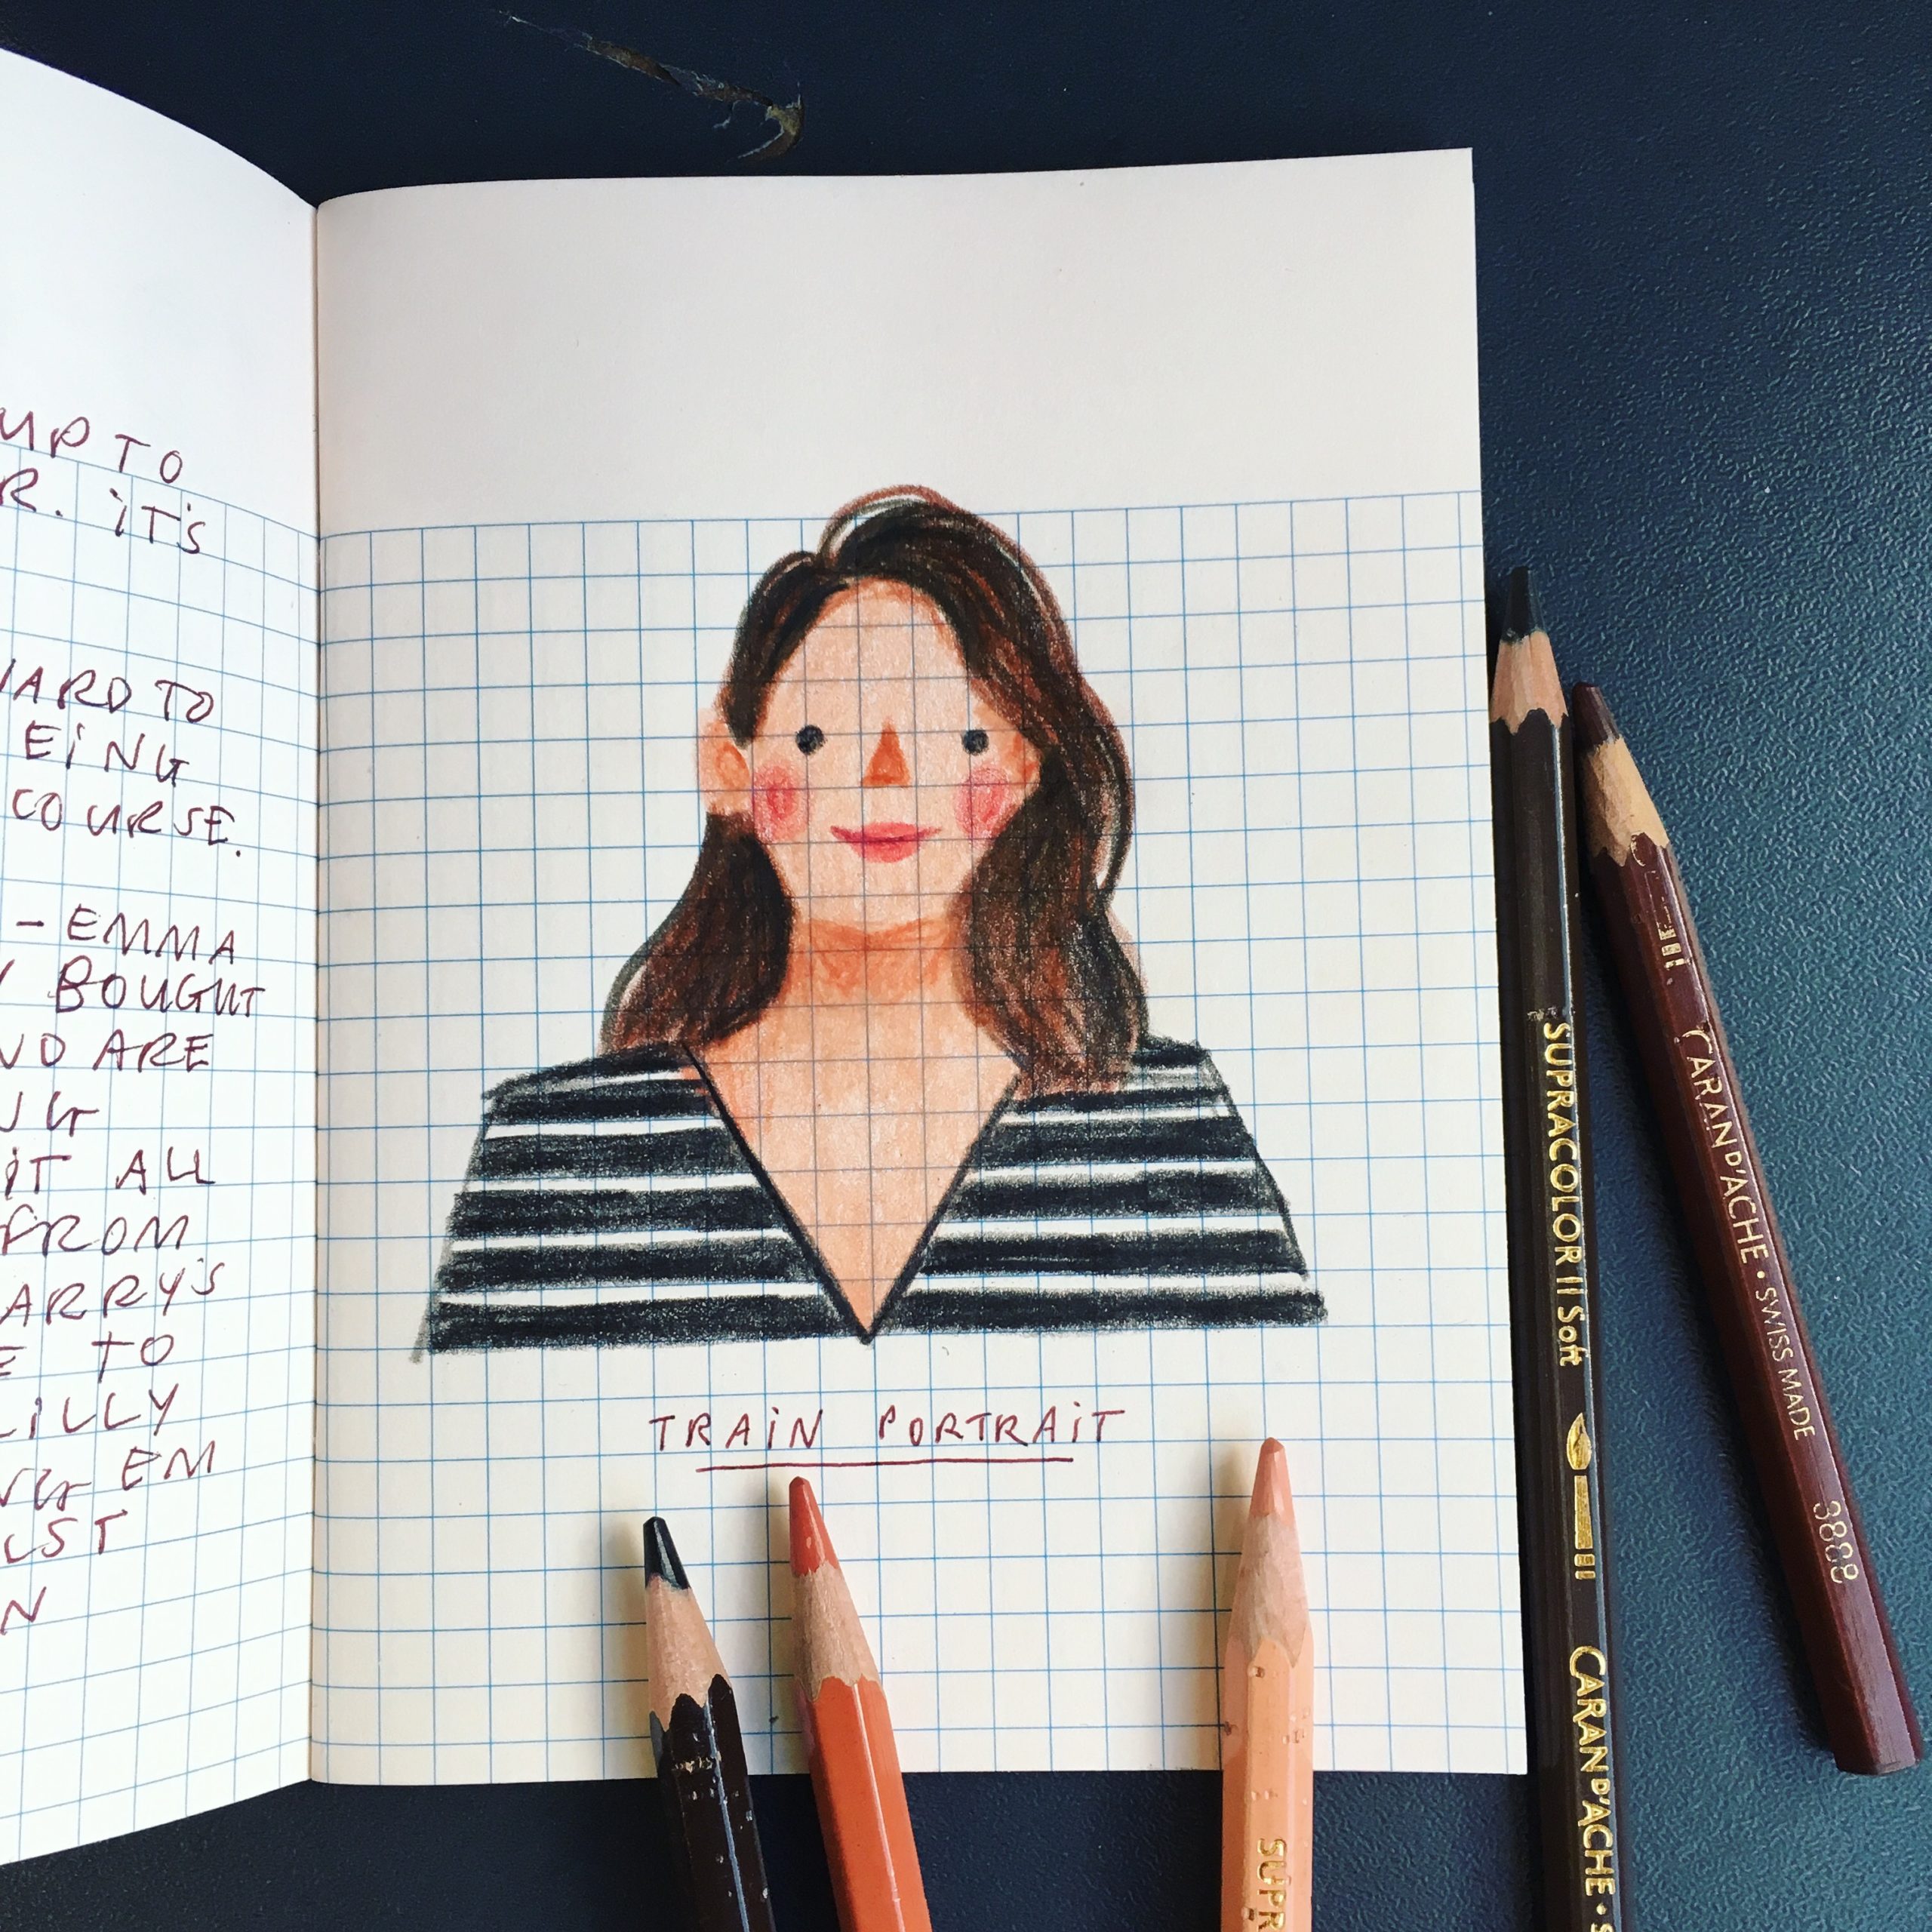 UP TO
R. iT'S
TO
EiNG
COURSE.
- EMMA
BOUGHT
ARE
iT ALL
FROM
ARRY'S
TO
LiLLY
EM
N
TRAiN PORTRAiT
SUPRACOLOR II Soft CARAN D'ACHE
CARAN D'ACHE · SWISS MADE 3888
SUPR